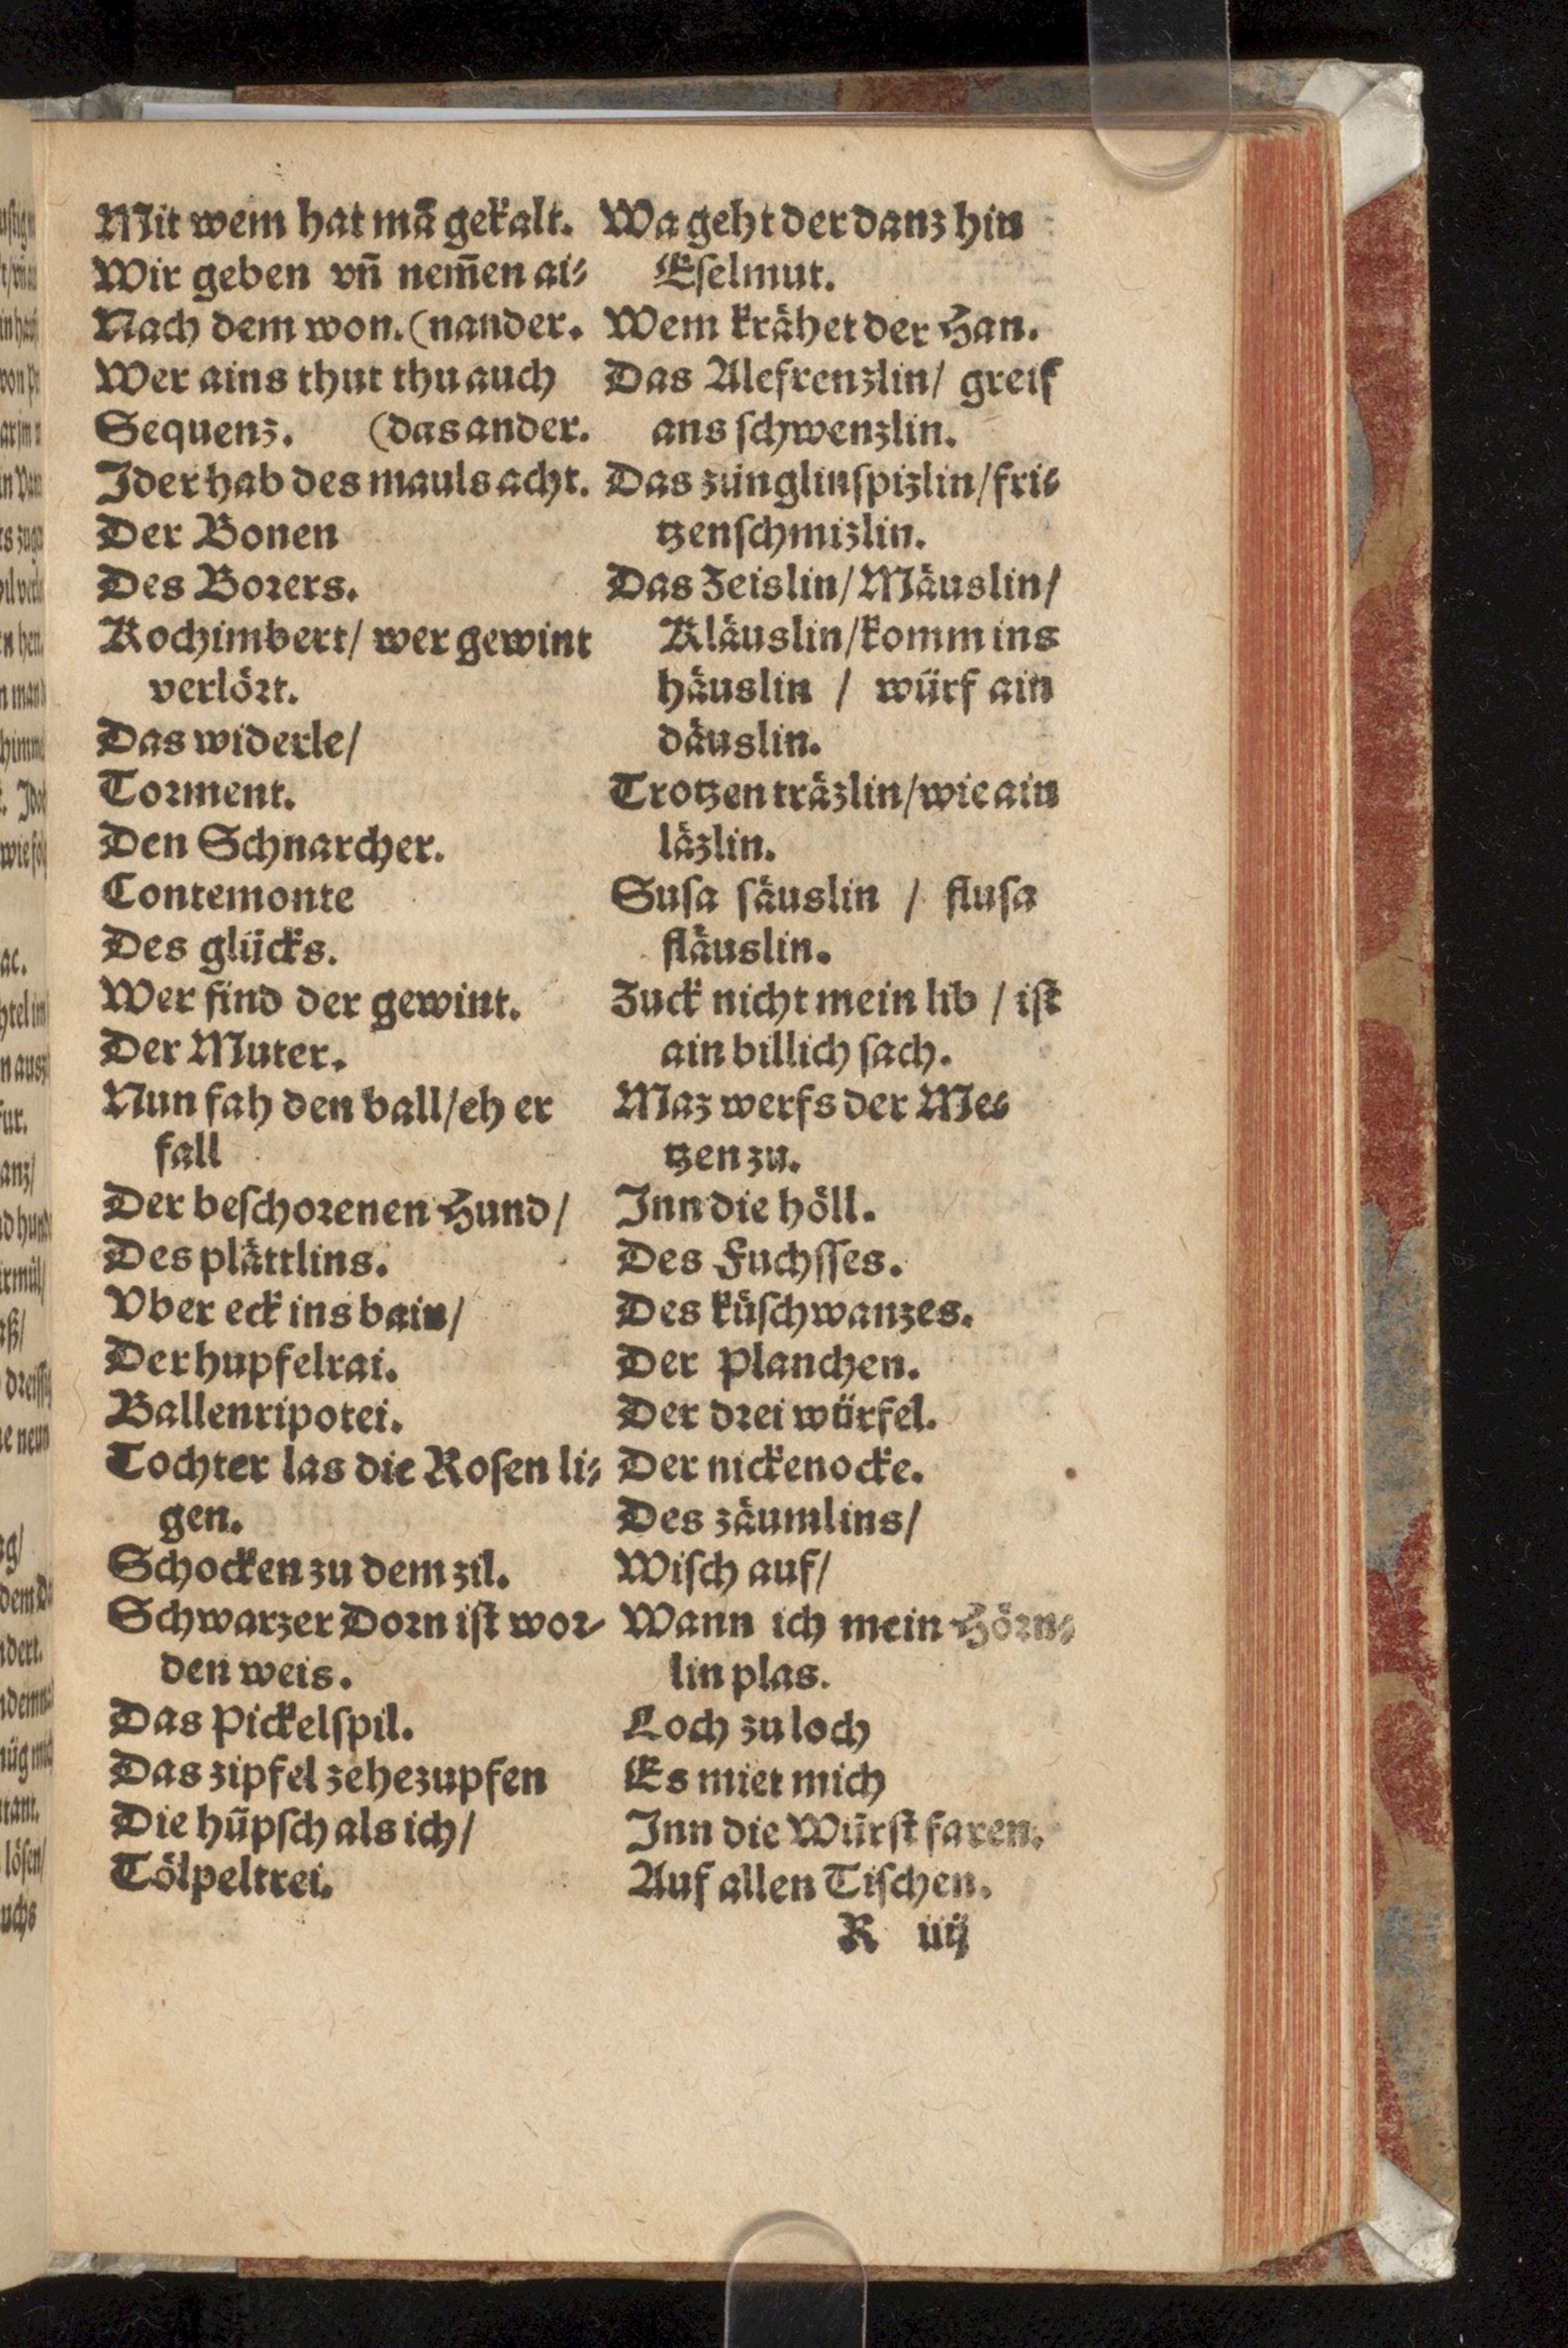 Mit wem hat mā gekalt.
Wir geben vn̄ nem̄en ai⸗
Nach dem won. (nander.
Wer ains thut thu auch
Sequenz. (das ander.
Jder hab des mauls acht.
Der Bonen
Des Borers.
Kochimbert/ wer gewint
verlört.
Das widerle/
Torment.
Den Schnarcher.
Contemonte
Des glücks.
Wer find der gewint.
Der Muter.
Nun fah den ball/ eh er
fall
Der beſchorenen Hund/
Des plättlins.
Vber eck ins bain/
Der hupfelrai.
Ballenripotei.
Tochter las die Roſen li⸗
gen.
Schocken zu dem zil.
Schwarzer Dorn iſt wor⸗
den weis.
Das Pickelſpil.
Das zipfel zehezupfen
Die hüpſch als ich/
Tölpeltrei.
Wa geht der danz hin
Eſelmut.
Wem krähet der Han.
Das Alefrenzlin/ greif
ans ſchwenzlin.
Das zünglinſpizlin/ fri⸗
tzenſchmizlin.
Das Zeislin/ Mäuslin/
Kläuslin/ komm ins
häuslin / würf ain
däuslin.
Trotzen träzlin/ wie ain
läzlin.
Suſa ſäuslin / fluſa
fläuslin.
Zuck nicht mein lib / iſt
ain billich ſach.
Maz werfs der Me⸗
tzen zu.
Inn die höll.
Des Fuchſſes.
Des küſchwanzes.
Der Planchen.
Der drei würfel.
Der nickenocke.
Des zäumlins/
Wiſch auf/
Wann ich mein Hörn⸗
lin plas.
Loch zu loch
Es miet mich
Inn die Würſt faren.
Auf allen Tiſchen.
R iiij